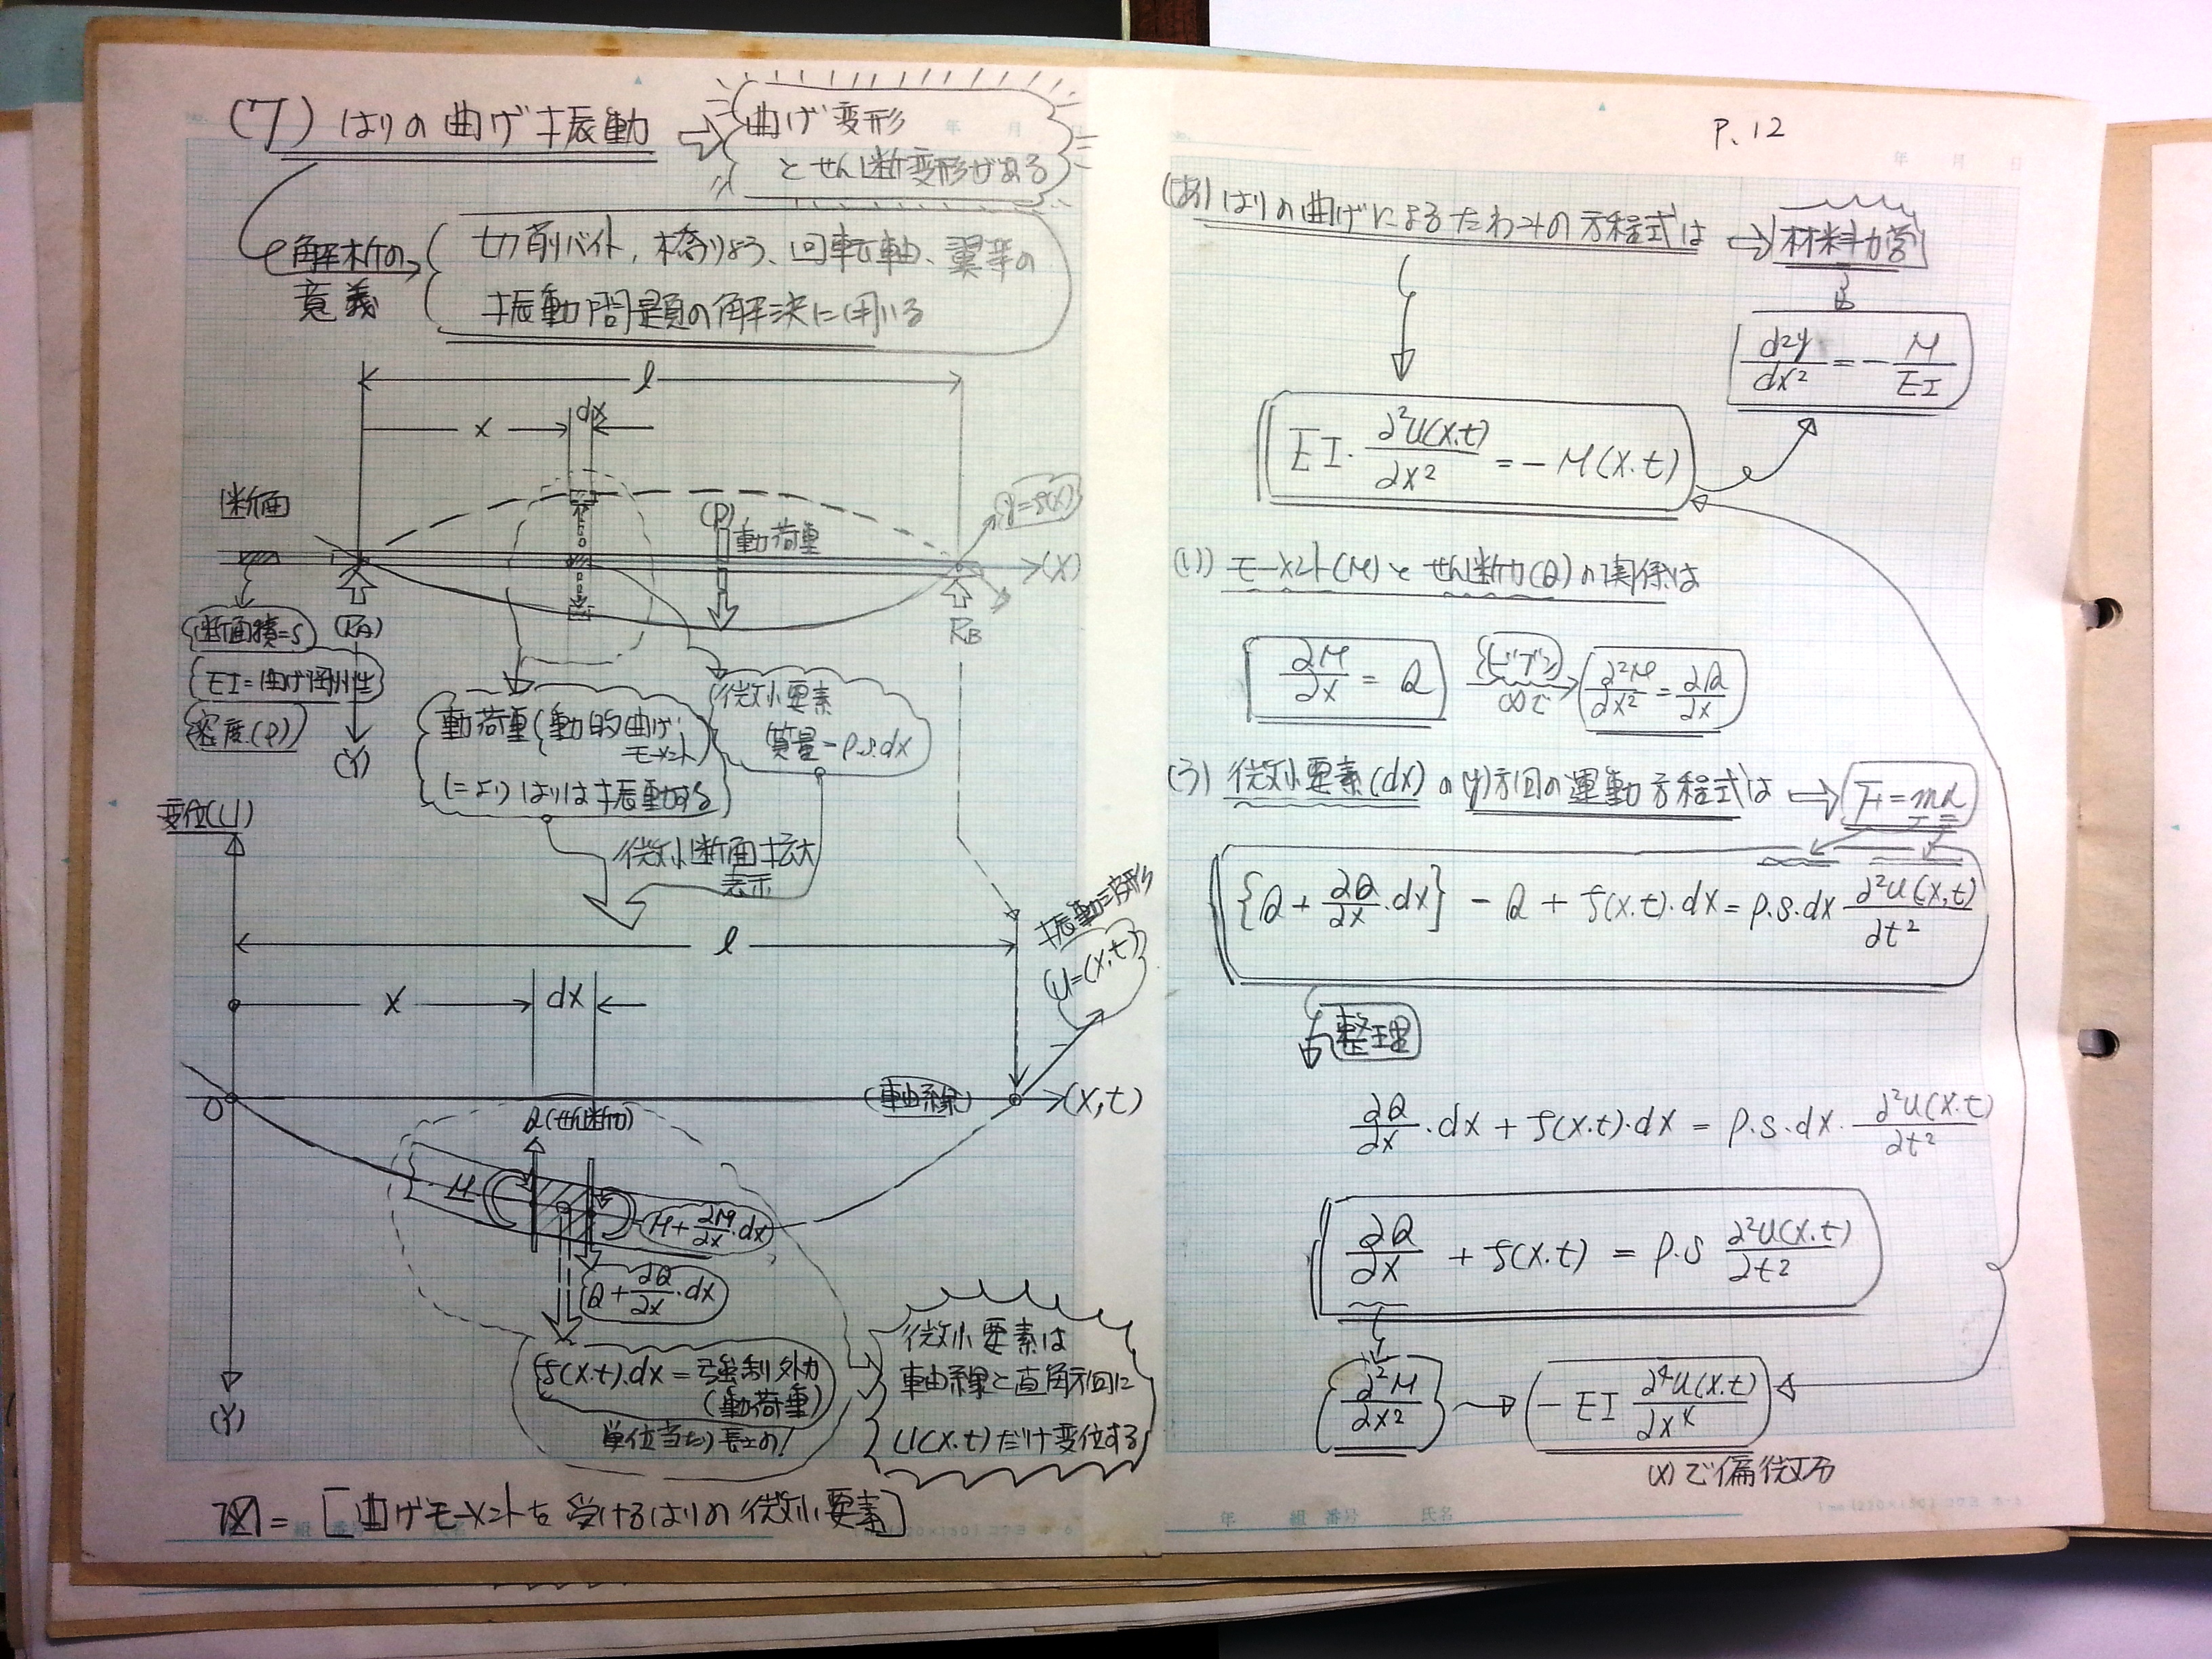 (7) はりの曲げ振動 ⇨ 曲げ変形
とせん断変形がある
解析の意義
切削バイト, 橋りょう、回転軸、翼等の
振動問題の解決に用いる
l
x
dx
断面
(P)
動荷重
y=f(x)
(X)
断面積=S
(RA)
RB
EI=曲げ剛性
密度(ρ)
(Y)
動荷重(動的曲げ
モーメント)
によりはりは振動する
微小要素
質量=ρ.s.dx
変位(U)
微小断面拡大
表示
l
振動波形
U=(x,t)
x
dx
O
(軸線)
(x,t)
Q(せん断力)
M
M+∂M/∂x.dx
Q+∂Q/∂x.dx
f(x.t).dx=強制外力
(動荷重)
単位当たり長さの!
微小要素は
軸線と直角方向に
U(x.t)だけ変位する
(Y)
図=[曲げモーメントを受けるはりの微小要素]
P.12
(あ) はりの曲げによるたわみの方程式は ⇨ 材料力学
d2y/dx2=-M/EI
EI.∂2U(x.t)/∂x2=-M(x.t)
(い) モーメント(M)とせん断力(Q)の関係は
∂M/∂x=Q
ビブン
(x)で
∂2M/∂x2=∂Q/∂x
(う) 微小要素(dx)の(y)方向の運動方程式は ⇨ F=mα
{Q+∂Q/∂x.dx}-Q+f(x.t).dx=ρ.s.dx ∂2U(x,t)/∂t2
整理
∂Q/∂x.dx+f(x.t).dx=ρ.s.dx.∂2U(x.t)/∂t2
∂Q/∂x+f(x.t)=ρ.s ∂2U(x.t)/∂t2
∂2M/∂x2 → -EI ∂4U(x.t)/∂x4
(x)で偏微分
年 組 番号 氏名